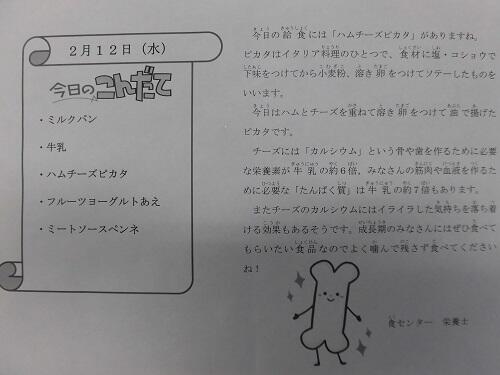 2月12日（水）
今日のこんだて
・ミルクパン
・牛乳
・ハムチーズピカタ
・フルーツヨーグルトあえ
・ミートソースペンネ
今日の給食には「ハムチーズピカタ」がありますね。
ピカタはイタリア料理のひとつで、食材に塩・コショウで
下味をつけてから小麦粉、溶き卵をつけてソテーしたものを
いいます。
今日はハムとチーズを重ねて溶き卵をつけて油で揚げた
ピカタです。
チーズには「カルシウム」という骨や歯を作るために必要
な栄養素が牛乳の約6倍、みなさんの筋肉や血液を作るた
めに必要な「たんぱく質」は牛乳の約7倍もあります。
またチーズのカルシウムにはイライラした気持ちを落ち着
ける効果もあるそうです。成長期のみなさんにはぜひ食べて
もらいたい食品なのでよく噛んで残さず食べてください
ね！
食センター　栄養士